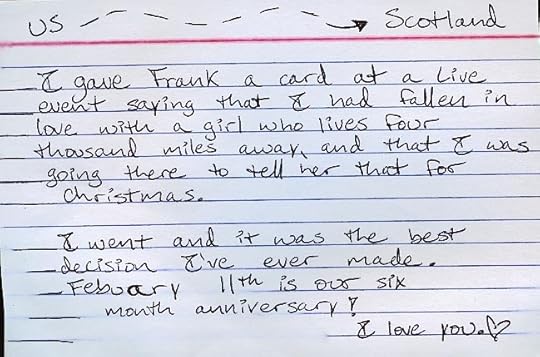 US Scotland
I gave Frank a card at a live
event saying that I had fallen in
love with a girl who lives four
thousand miles away, and that I was
going there to tell her that for
Christmas.
I went and it was the best
decision I've ever made.
Febuary 11th is our six
month anniversary!
I love you.♡